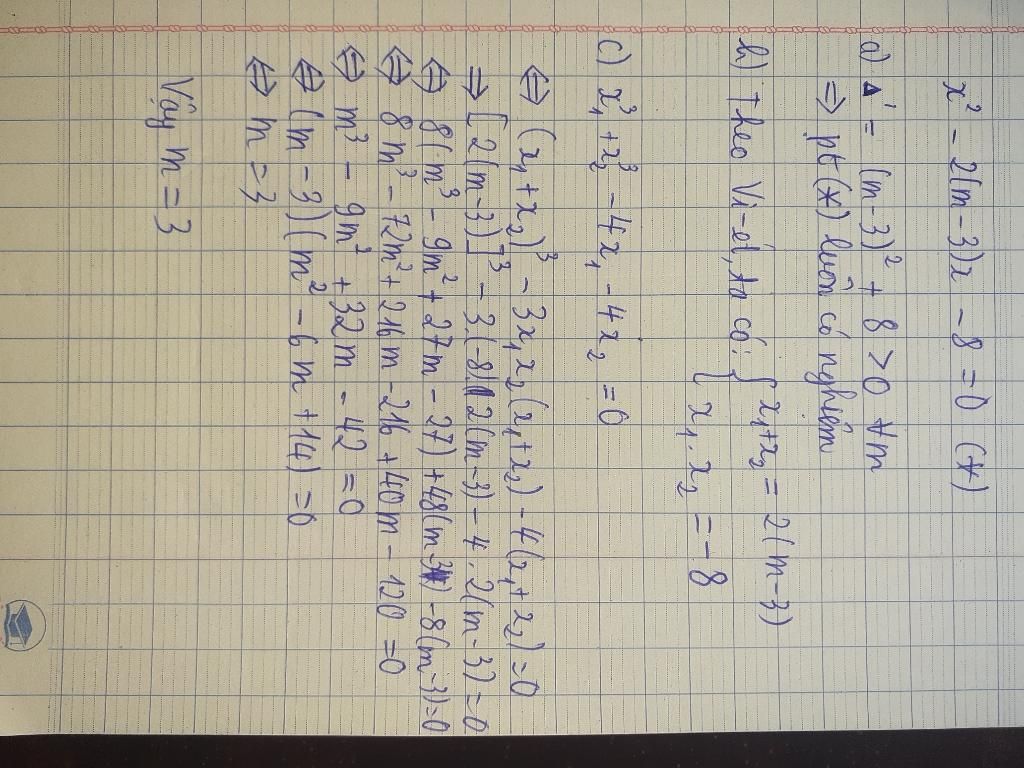 x² - 2(m-3)x - 8 = 0 (*)
a) Δ' = (m-3)² + 8 > 0 ∀m
⇒ pt (*) luôn có nghiệm
b) Theo Vi-ét, ta có: { x₁+x₂ = 2(m-3)
{ x₁.x₂ = -8
c) x₁³ + x₂³ - 4x₁ - 4x₂ = 0
⇔ (x₁+x₂)³ - 3x₁x₂(x₁+x₂) - 4(x₁+x₂) = 0
⇒ [2(m-3)]³ - 3.(-8).2(m-3) - 4.2(m-3) = 0
⇔ 8(m³ - 9m² + 27m - 27) + 48(m-3) - 8(m-3) = 0
⇔ 8m³ - 72m² + 216m - 216 + 40m - 120 = 0
⇔ m³ - 9m² + 32m - 42 = 0
⇔ (m-3)(m² - 6m + 14) = 0
⇔ m = 3
Vậy m = 3